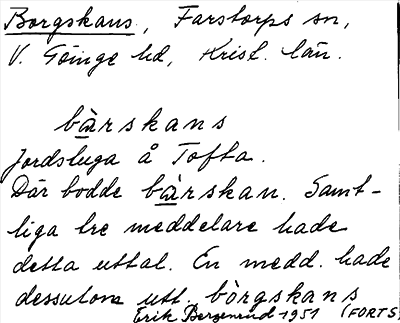 Borgskans, Farstorps sn,
V. Göinge hd, Krist. län.
bàrskans
Jordstuga å Tofta.
Där bodde bàrskan. Samt-
liga tre meddelare hade
detta uttal. En medd. hade
dessutom utt. bòrgskans
Erik Bergenrud 1951 (FORTS